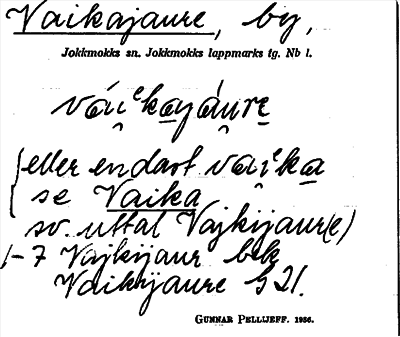 Vaikajaure, by,
Jokkmokks sn. Jokkmokks lappmarks tg. Nb l.
vái̯ᵉka̱yáu̯re̱
eller endast vai̯ᵉka̱
se Vaika
sv. uttal Vajkijaur(e)
1-7 Vajkijaur bek
Vaikijaure G 21.
GUNNAR PELLIJEFF. 1956.